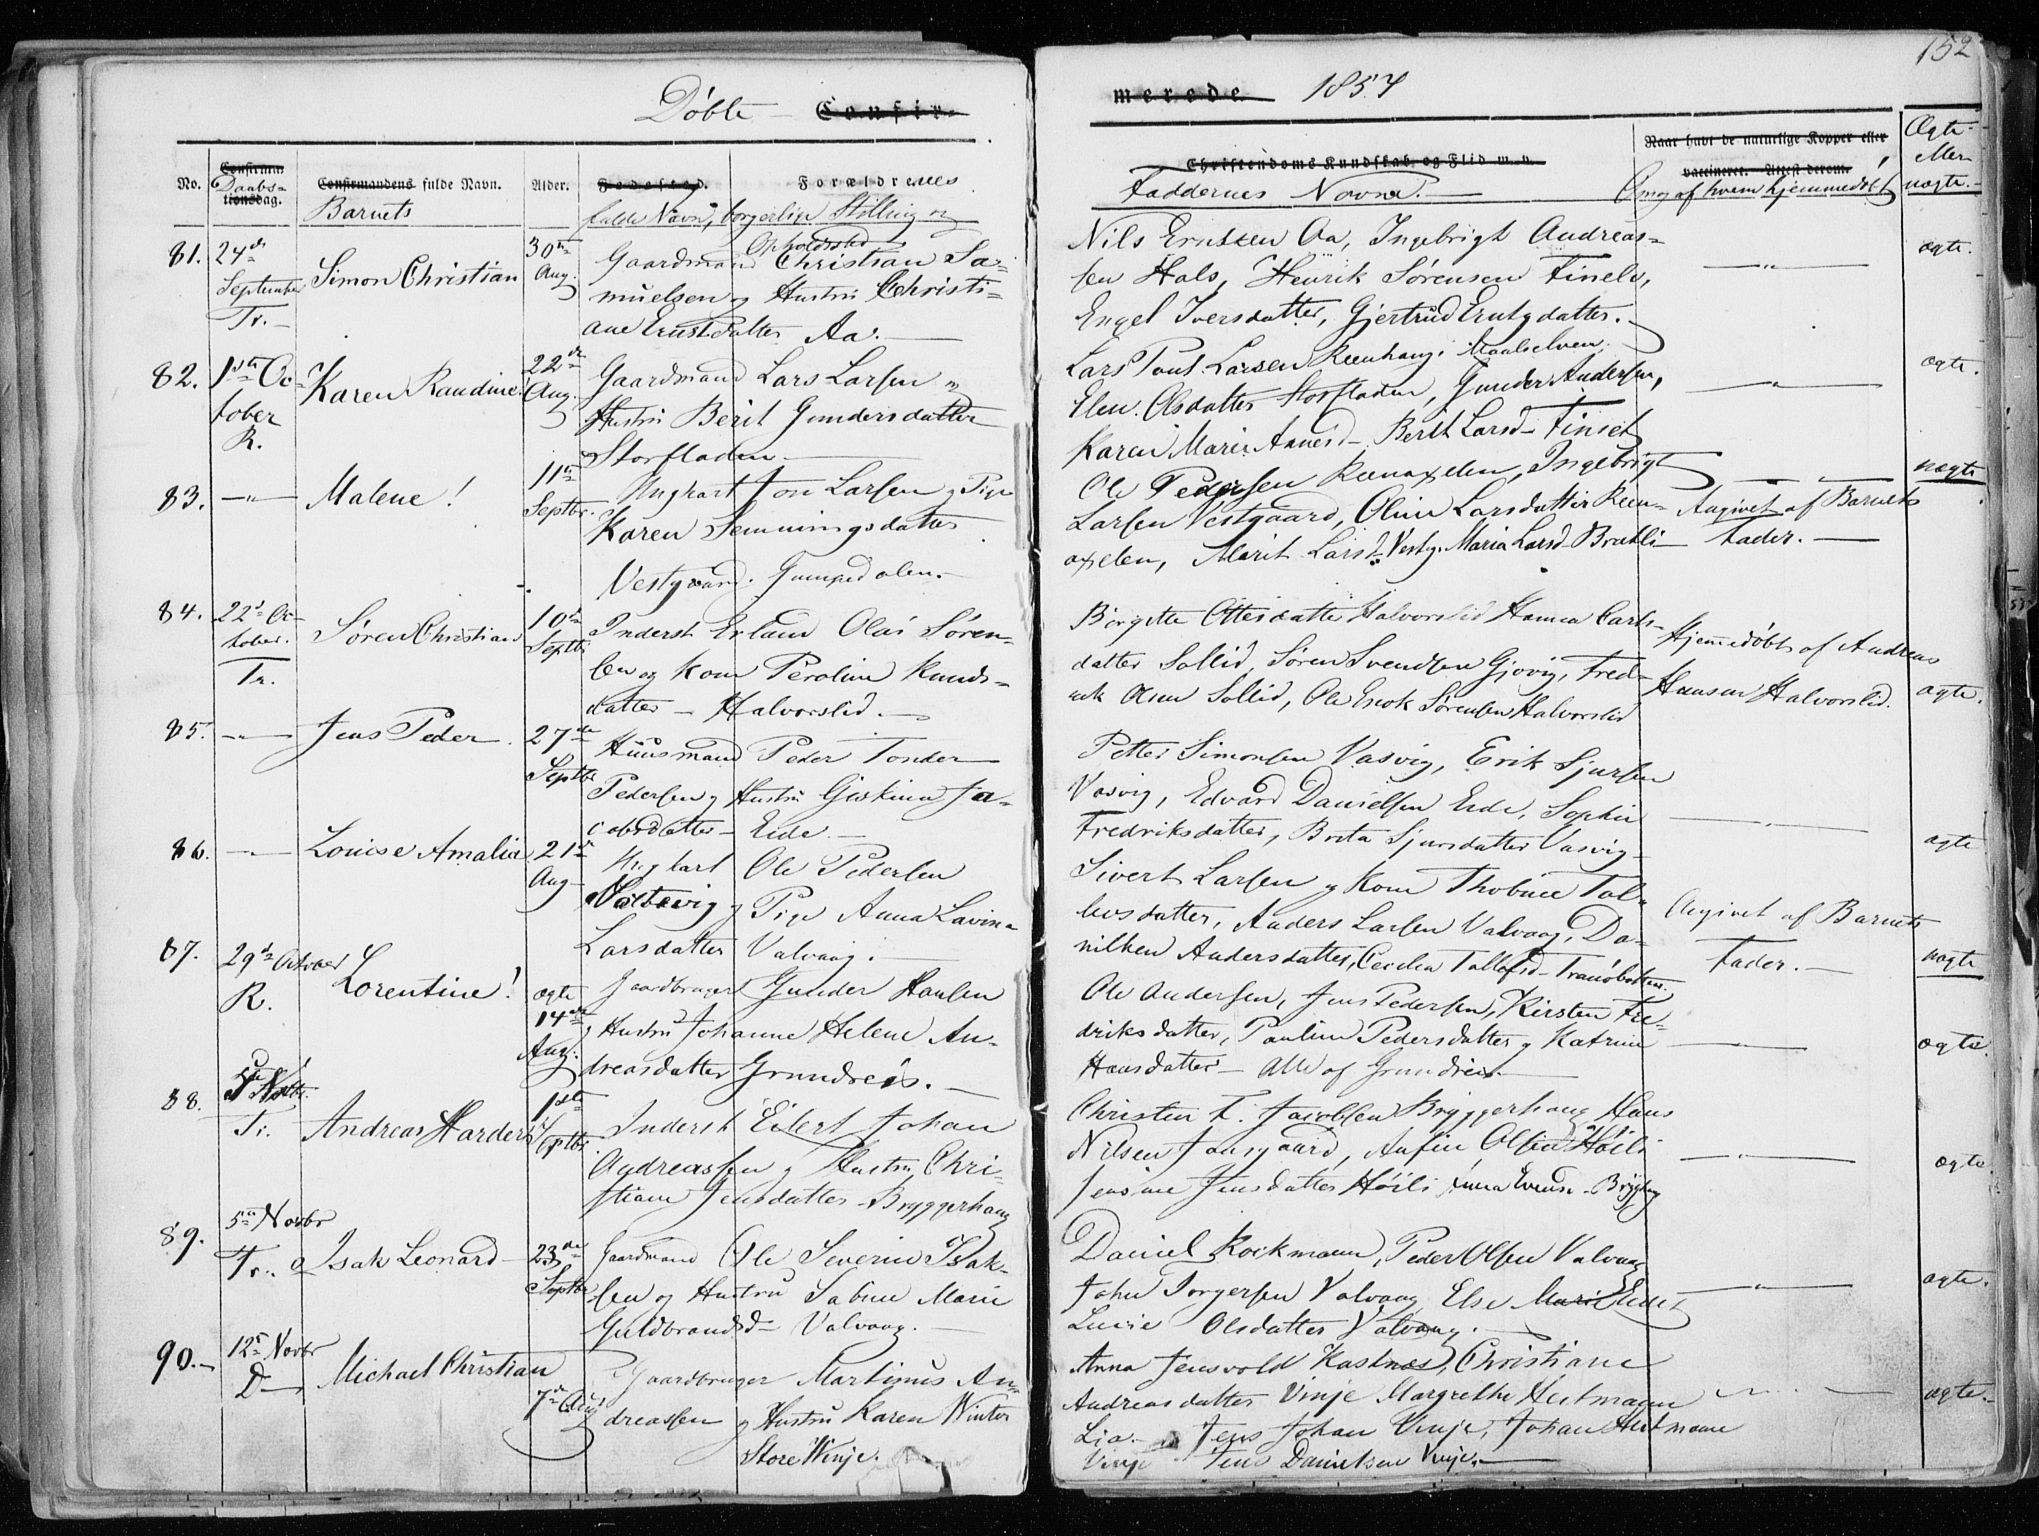 152
Døbte — Confir-
merede. 1854
No.
Confirma-
Daabs-
tionsdag.
Confirmandens fulde Navn.
Barnets
Alder.
Fødested. Forældrenes
fulde Navn, borgerlige Stilling og
Opholdssted
Christendoms Kundskab og Flid m. v.
Faddernes Navne. —
Naar havt de naturlige Kopper eller
vaccineret. Attest derom.
Om og af hvem hjemmedøbt
Ægte
eller
uægte. —
81. 24de
September
Tr. —
Simon Christian
30te
Aug.
Gaardmand Christian Sa-
muelsen og Hustru Christi-
ane Ernstdatter Aa. —
Nils Erntsen Aa, Ingebrigt Andreas-
sen Hals, Henrik Sørensen Finelv,
Engel Iversdatter, Gjertrud Erntsdatter. —
— " —
ægte.
82. 1ste Oc-
tober
R.
Karen Randine!
22de
Aug.
Gaardmand Lars Larsen og
Hustru Berit Gundersdatter
Storfladen. —
Lars Poul Larsen Reenhaug. Maalselven.
Elen Olsdatter Storfladen, Gunder Andersen,
Karen Marie Annesd — Berit Larsd — Finset
— " —
ægte.
83. — " — Malene!
11te
Septbr.
Ungkarl Jon Larsen og Pige
Karen Semmingsdatter
Vestgaard. Gumpedalen. —
Ole Pedersen Reenaxelen, Ingebrigt
Larsen Vestgaard, Oline Larsdatter Reen-
axelen, Marit Larsd. Vestg. Maria Larsd — Bratli —
Angivet af Barnets
Fader. —
uægte
84. 22de Oc-
tober.
Tr.
Søren Christian
10de
Septbr
Inderst Erland Olai Søren-
sen og Kone Peroline Knuds-
datter — Halvorslid. —
Birgitte Ottesdatter Halvorslid Hanna Carls-
datter Sollid, Søren Svendsen Gjovig, Fred-
rik Olsen Sollid, Ole Enok Sørensen Halvorslid
Hjemmedøbt af Andreas
Hansen Halvorslid.
ægte.
85. — " — Jens Peder
27de
Septbr
Huusmand Peder Tonder
Pedersen og Hustru Giskina Ja-
cobsdatter — Eide. —
Petter Simonsen Vasvig, Erik Sjursen
Vasvig, Edvard Danielsen Eide, Sophie
Fredriksdatter, Brita Sjursdatter Vasvig —
ægte
86. — " — Louise Amalia
21de
Aug —
Ungkarl Ole Pedersen
og Pige Anna Lavina
Larsdatter Valvaag.
Sivert Larsen og Kone Thobine Tol-
lefsdatter, Anders Larsen Valvaag, Da-
nilken Andersdatter, Cecilia Tollefsd — Tranøbotten.
Angivet af Barnets
Fader. —
uægte
87. 29de October
R.
Lorentine!
ægte
14de
Aug.
Gaardbruger Gunder Hansen
og Hustru Johanne Helene An-
dreasdatter Grundreis. —
Ole Andersen, Jens Pedersen, Kirsten Fre-
driksdatter, Pauline Pedersdatter og Katrine
Hansdatter — Alle af Grundreis —
ægte.
88. 5te Novbr.
Tr.
Andreas Harder
1ste
Septbr.
Inderst Eilert Johan
Andreassen og Hustru Chri-
stiane Jensdatter Bryggerhaug
Christen T. Jacobsen Bryggerhaug Hans
Nilsen Jonsgaard, Anfin Olsen Høili
Jensine Jensdatter Høili Anna Evensd — Brygghaug
— " —
ægte.
89. 5te Novbr
Tr.
Isak Leonard —
23de
Septbr
Gaardmand Ole Severin Isak-
sen og Hustru Sabine Marie
Guldbrandsd — Valvaag. —
Daniel Kockmann, Peder Olsen Valvaag
John Torgersen Valvaag Else Marie Eide
Lucie Olsdatter Valvaag. —
— " —
ægte.
90. — 12te Novbr
D —
Michael Christian
7de Aug
Gaardbruger Martinus An-
dreassen og Hustru Karen Winter
Store Winje.
Anna Jensvold Kastnæs, Christiane
Andreasdatter Vinje Margrethe Heitmann
Lia. — Jens Johan Vinje, Johan Heitmann
Vinje Jens Danielsen Vinje. —
ægte. —